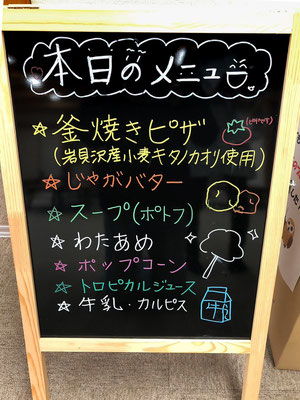 本日のメニュー
☆釜焼きピザ
(岩見沢産小麦キタノカオリ使用)
☆じゃがバター
☆スープ(ポトフ)
☆わたあめ
☆ポップコーン
☆トロピカルジュース
☆牛乳・カルピス
牛